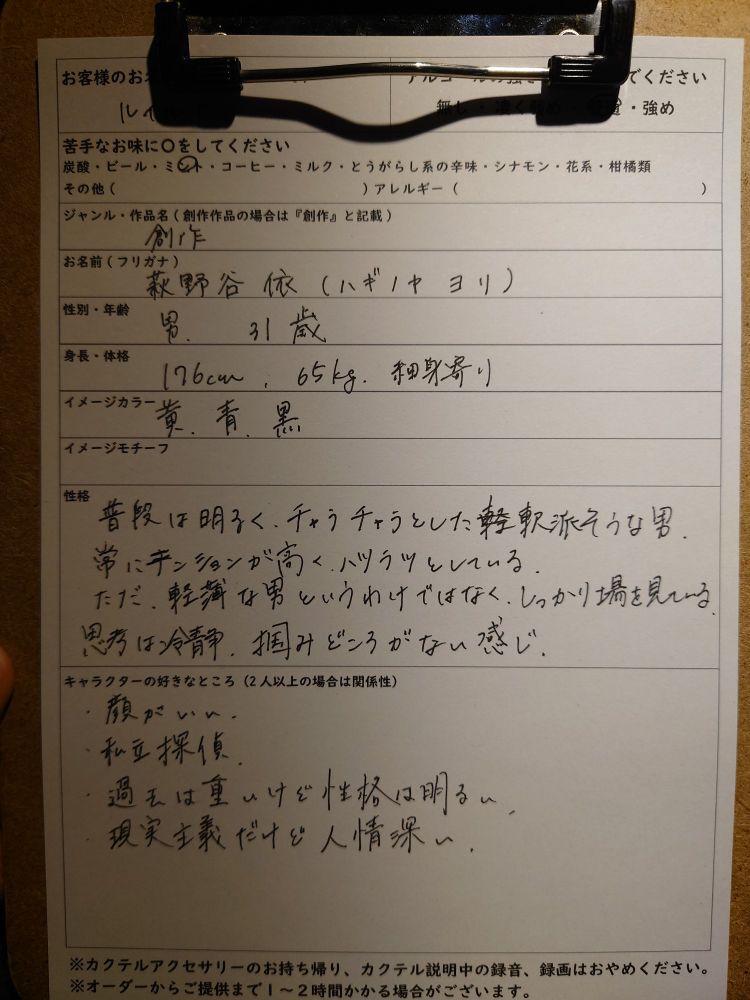 お客様のお
アルコールの強さ でください
ルイ
無し・凄く弱め・ ・強め
苦手なお味に〇をしてください
炭酸・ビール・ミント・コーヒー・ミルク・とうがらし系の辛味・シナモン・花系・柑橘類
その他( )アレルギー( )
ジャンル・作品名(創作作品の場合は『創作』と記載)
創作
お名前(フリガナ)
萩野谷 依 (ハギノヤ ヨリ)
性別・年齢
男. 31歳
身長・体格
176cm. 65kg. 細身寄り
イメージカラー
黄. 青. 黒
イメージモチーフ
性格
普段は明るく、チャラチャラとした軽軟派そうな男.
常にテンションが高く、ハツラツとしている.
ただ、軽薄な男というわけではなく、しっかり場を見ている.
思考は冷静、掴みどころがない感じ.
キャラクターの好きなところ(2人以上の場合は関係性)
・顔がいい.
・私立探偵.
・過去は重いけど性格は明るい.
・現実主義だけど人情深い.
※カクテルアクセサリーのお持ち帰り、カクテル説明中の録音、録画はおやめください。
※オーダーからご提供まで1〜2時間かかる場合がございます。